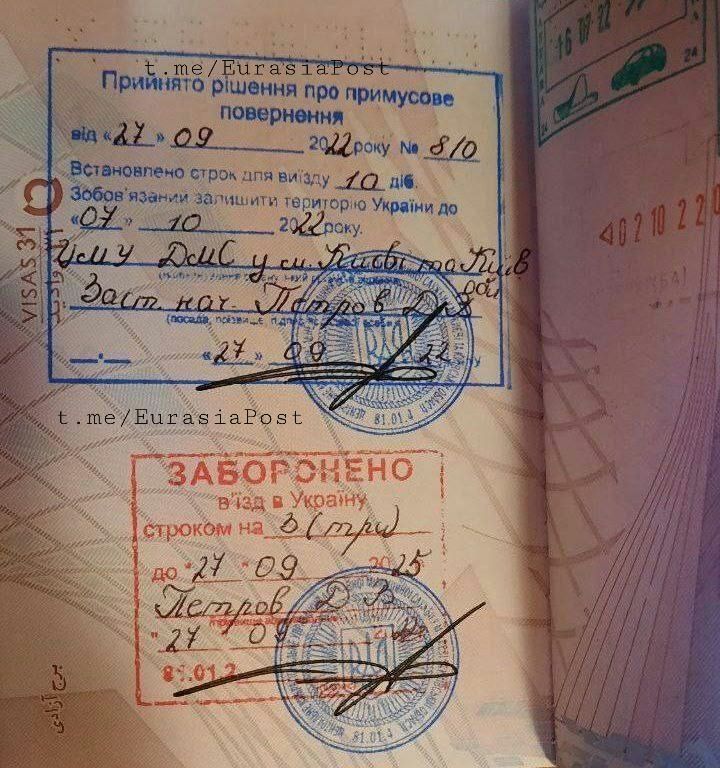 t.me/EurasiaPost
Прийнято рішення про примусове
повернення
від «27» 09 2022 року № 810
Встановлено строк для виїзду 10 діб.
Зобов'язаний залишити територію України до
«07» 10 2022 року.
ЦМУ ДМС у м. Києві та Київ
Заст. нач. Петров Д. В
«27» 09 22
81.01.4
t.me/EurasiaPost
ЗАБОРОНЕНО
в'їзд в Україну
строком на 3 (три)
до "27" 09 2025
Петров Д В
"27" 09
81.01.2
81.01.4
VISAS 31
برج آزادی
16 07 22
24
24
02 10 22